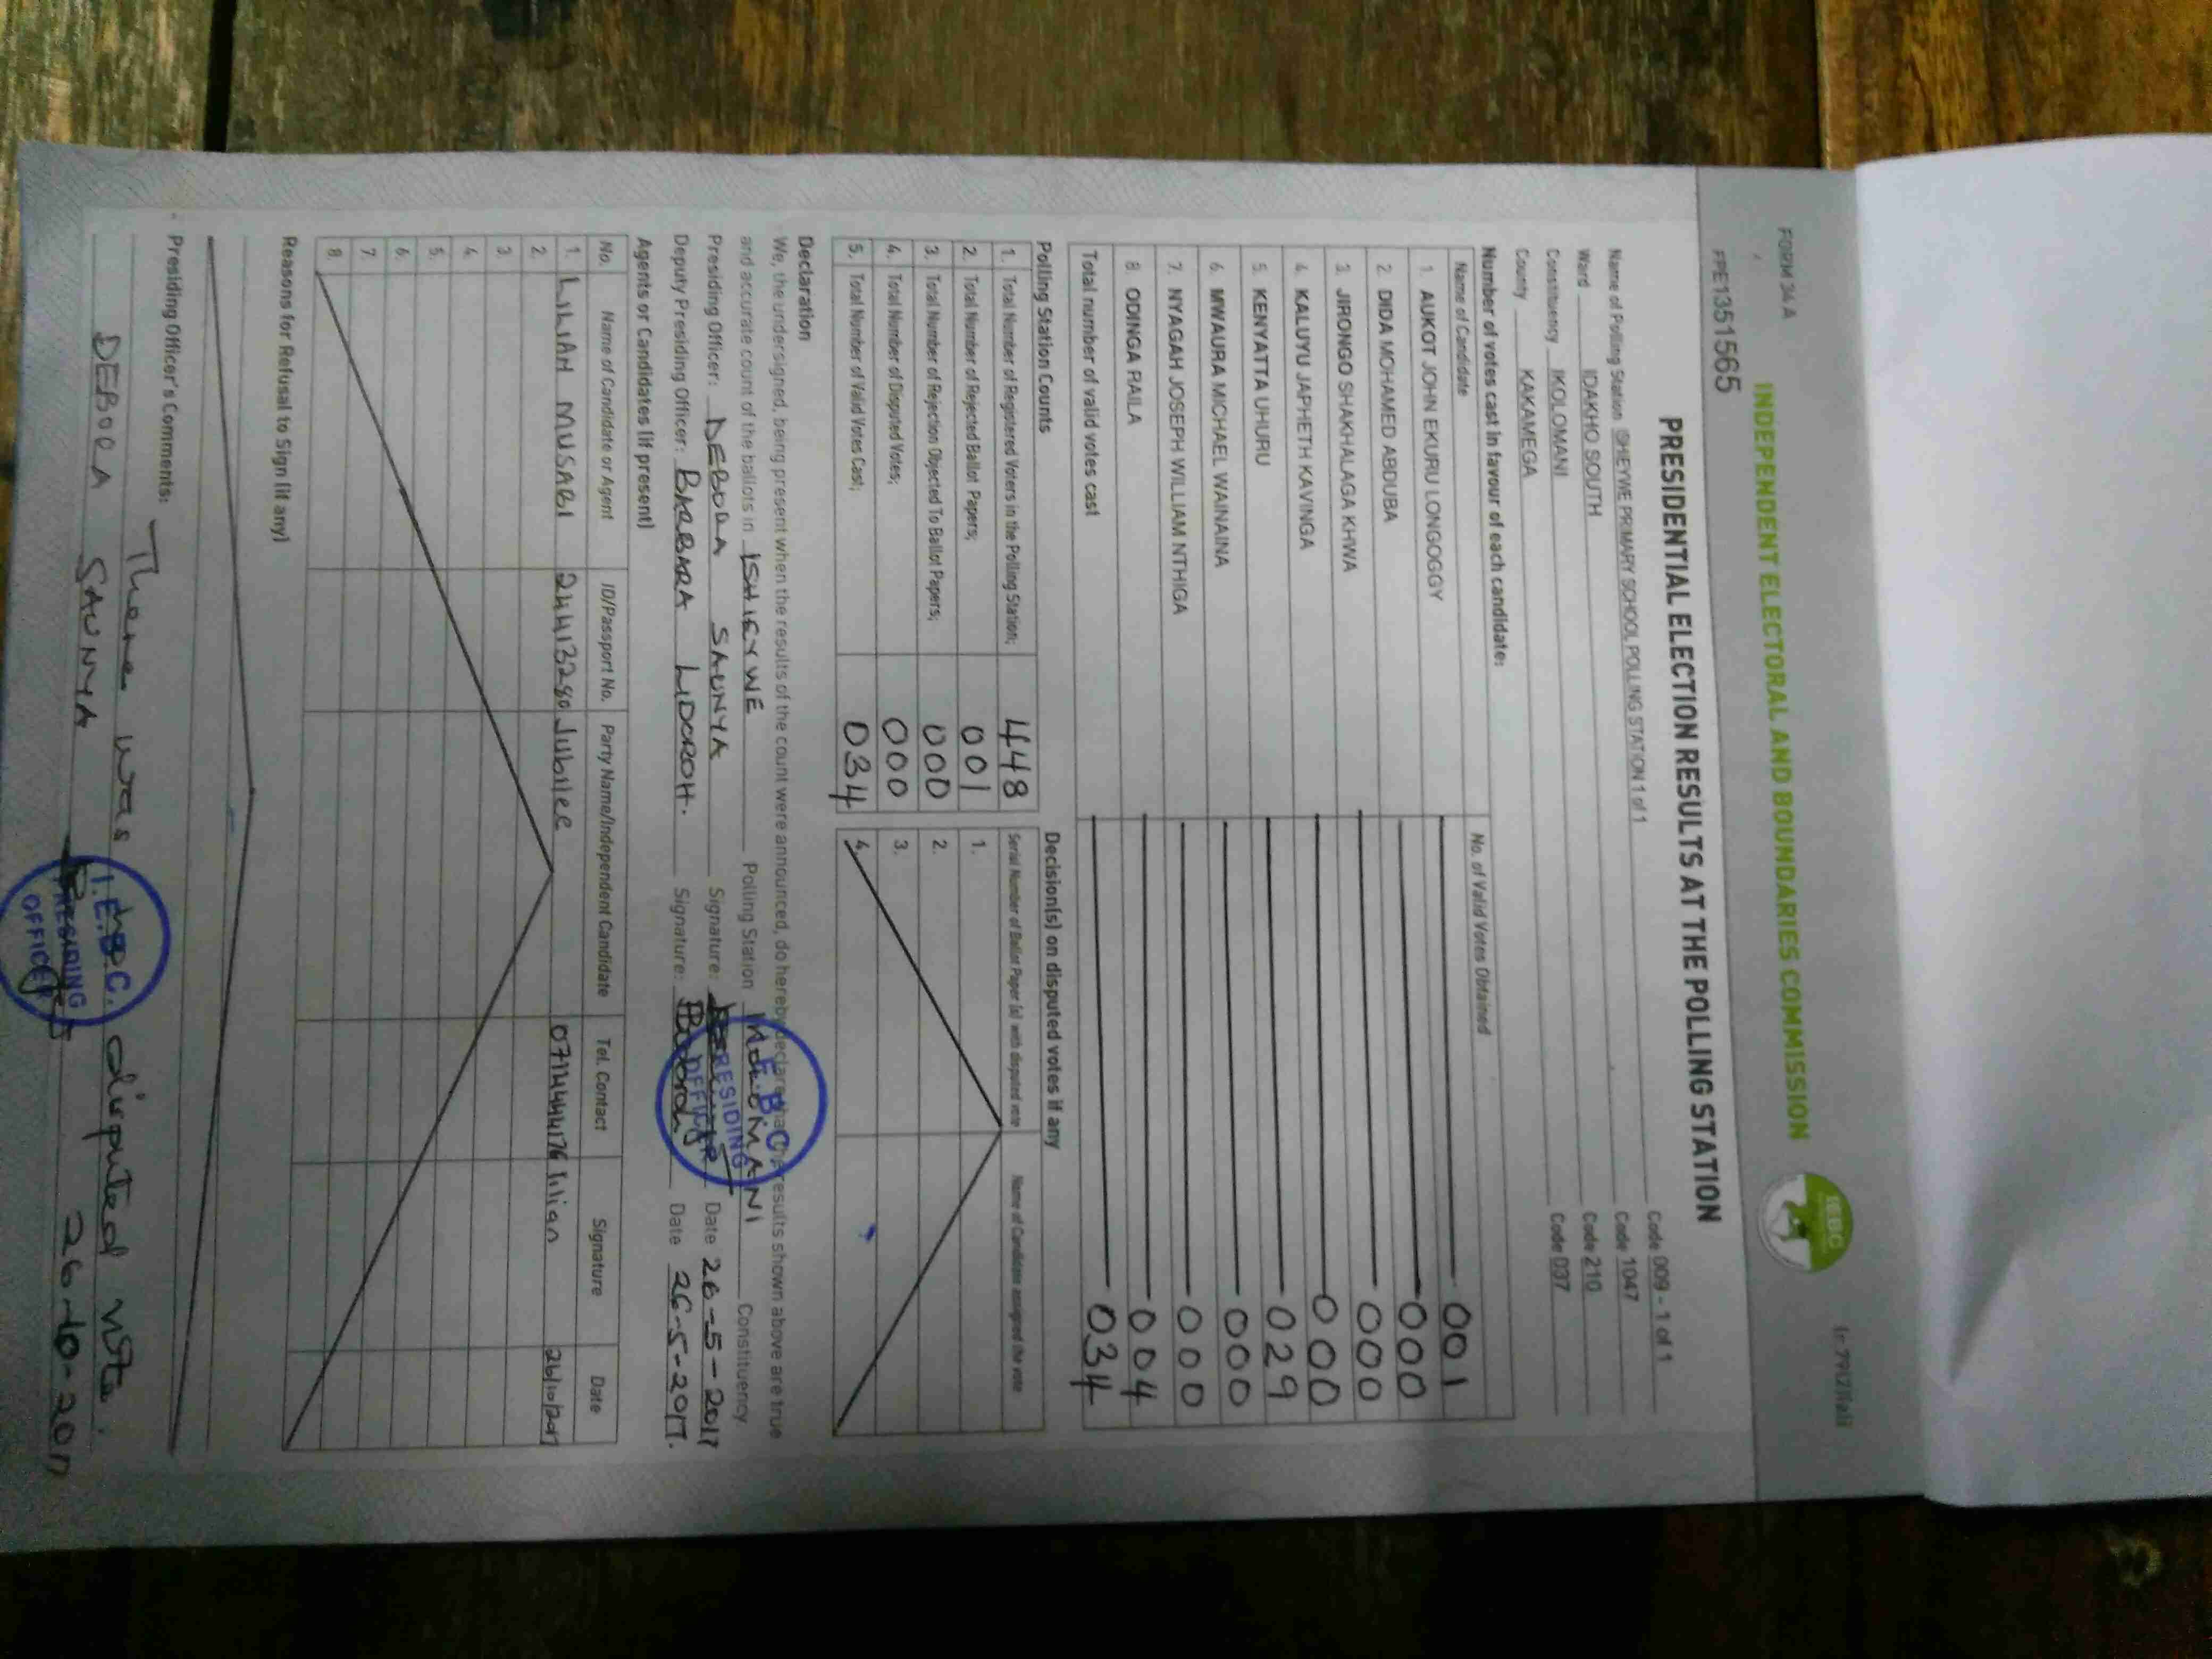 FORM 34 A
INDEPENDENT ELECTORAL AND BOUNDARIES COMMISSION
IEBC
FPE1351565
PRESIDENTIAL ELECTION RESULTS AT THE POLLING STATION
Name of Polling Station ISHEYWE PRIMARY SCHOOL POLLING STATION 1 of 1 Code 009 - 1 of 1
Ward IDAKHO SOUTH Code 1047
Constituency IKOLOMANI Code 210
County KAKAMEGA Code 037
Number of votes cast in favour of each candidate:
Name of Candidate No. of Valid Votes Obtained
1. AUKOT JOHN EKURU LONGOGGY 001
2. DIDA MOHAMED ABDUBA 000
3. JIRONGO SHAKHALAGA KHWA 000
4. KALUYU JAPHETH KAVINGA 000
5. KENYATTA UHURU 029
6. MWAURA MICHAEL WAINAINA 000
7. NYAGAH JOSEPH WILLIAM NTHIGA 000
8. ODINGA RAILA 004
Total number of valid votes cast 034
Polling Station Counts Decision(s) on disputed votes if any
1. Total Number of Registered Voters in the Polling Station; 448 Serial Number of Ballot Paper (s) with disputed vote Name of Candidate assigned the vote
2. Total Number of Rejected Ballot Papers; 001 1.
3. Total Number of Rejection Objected To Ballot Papers; 000 2.
4. Total Number of Disputed Votes; 000 3.
5. Total Number of Valid Votes Cast; 034 4.
Declaration
We, the undersigned, being present when the results of the count were announced, do hereby declare that the results shown above are true
and accurate count of the ballots in ISHIEYWE Polling Station IKOLOMANI Constituency
Presiding Officer: DEBORA SAUNYA Signature: Date 26-5-2017
Deputy Presiding Officer: BARBARA LIDOROH. Signature: Date 26-5-2017.
I.E.B.C. PRESIDING OFFICER
Agents or Candidates (if present)
No. Name of Candidate or Agent ID/Passport No. Party Name/Independent Candidate Tel. Contact Signature Date
1. LILIAN MUSABI 24413280 Jubilee 0714444176 Lilian 26/10/2017
2.
3.
4.
5.
6.
7.
8.
Reasons for Refusal to Sign (if any)
Presiding Officer's Comments: There was no disputed vote.
DEBORA SAUNYA 26-10-2017
I.E.B.C. PRESIDING OFFICER